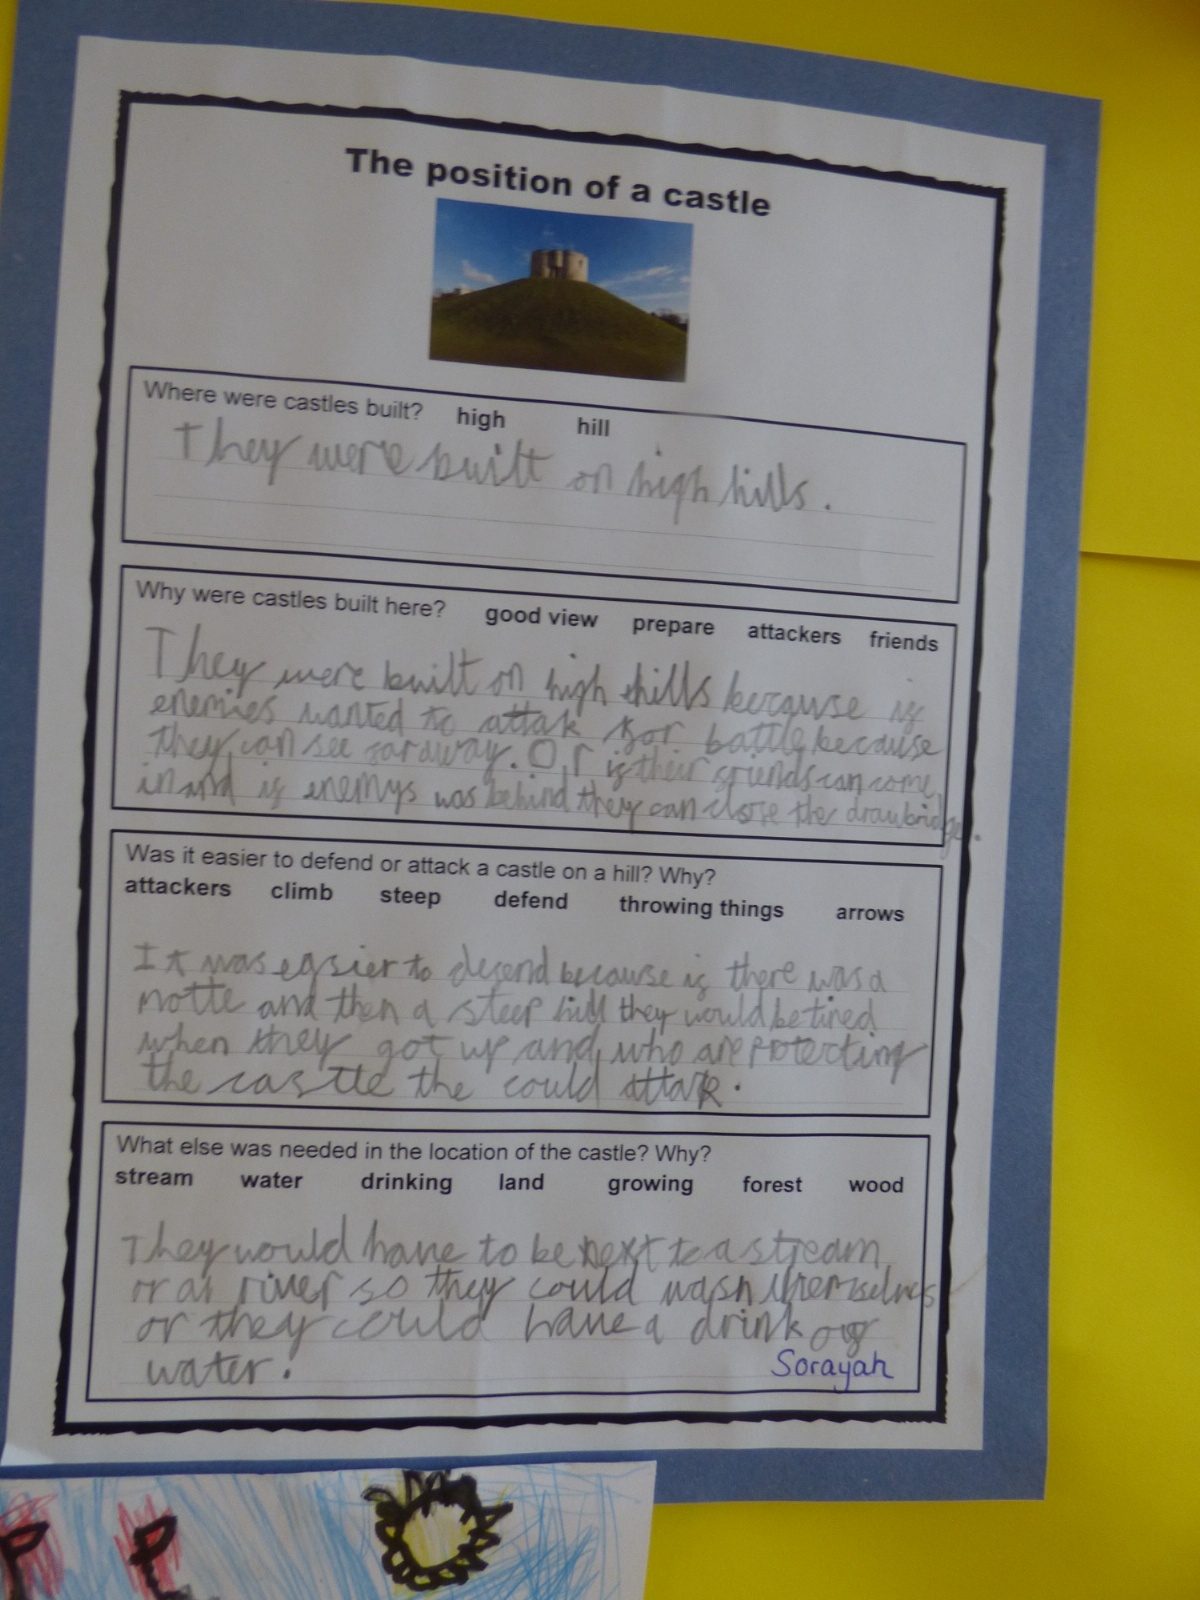 The position of a castle
Where were castles built? high hill
They were built on high hills.
Why were castles built here? good view prepare attackers friends
They were built on high hills because if
enemies wanted to attak for battle because
they can see far away. Or if their friends can come
in and if enemys was behind they can close the drawbridge.
Was it easier to defend or attack a castle on a hill? Why?
attackers climb steep defend throwing things arrows
It was easier to defend because if there was a
motte and then a steep hill they would be tired
when they got up and who are protecting
the castle the could attak.
What else was needed in the location of the castle? Why?
stream water drinking land growing forest wood
They would have to be next to a stream
or a river so they could wash themselves
or they could have a drink of
water.
Sorayah
P P